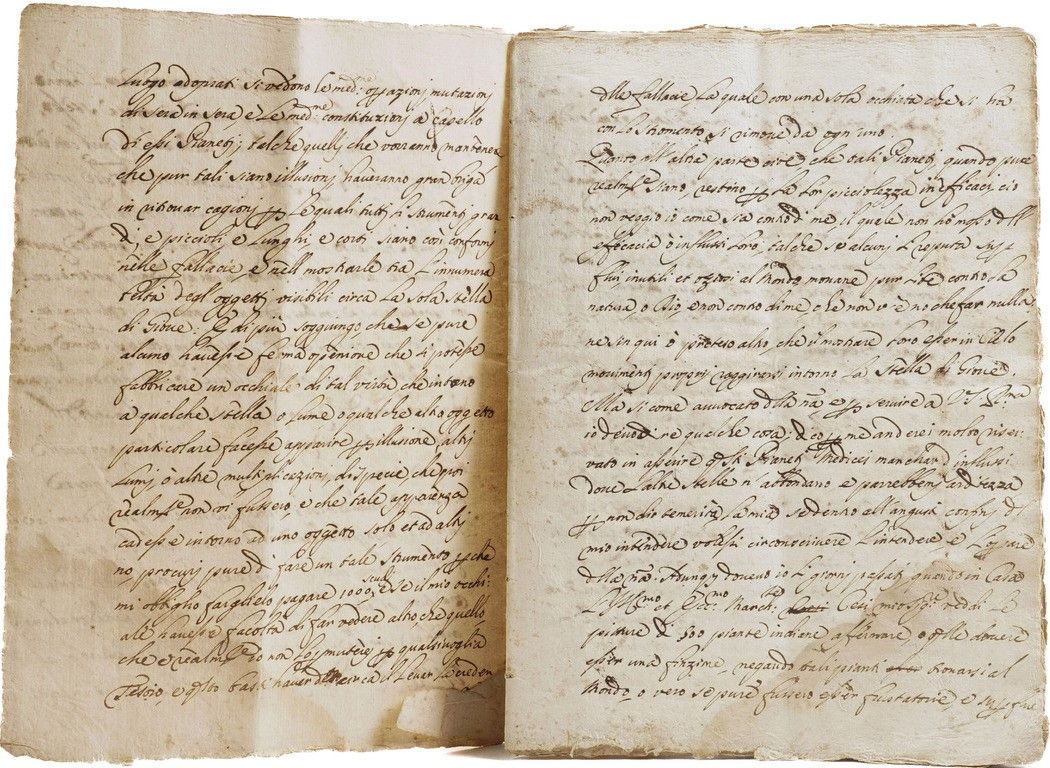 luogo adoprati si vedono le med.me operazioni mutazioni
di sera in sera, e le med.me constituzionj a capello
di essi Pianetj; talche quellj che vorranno mantenere
che pur tali siano illusionj haveranno gran briga
in ritrovar cagionj per le quali tutti li strumentj gran
di, e piccioli e lunghi e corti siano così conformj
nelle fallacie e nell mostrarle tra l'innumera
belità degl'oggettj visibili circa la sola stella
di Giove: E di più soggiungo che se pure
alcuno havesse ferma openione che si potesse
fabbricare un occhiale di tal virtù che intorno
a qualche stella o lume o qualche altro oggetto
particolare facesse apparire per illusione altri
lumj ò altre multiplicazionj di specie che poi
realm.te non vi fussero e che tale apparenza
cadesse intorno ad uno oggetto solo et ad altri
no procuri pure di fare un tale strumento per che
mi obbligho fargnelo pagare 1000 scudi e se il mio occhi-
ale havesse facoltà di far vedere altro, che quello
che è realm.te io non lo muterej per qualsivoglia
Tesoro, e q.sto basti haver detto circa il levar la creden
delle fallacie la quale con una sola occhiata che si fia
con lo stromento si rimove da ogn'uno.
Quanto all'altra parte cioè che tali Pianetj, quando pure
realm.te siano restino per la lor picciolezza inefficaci ciò
non veggio io come sia contro di me, il quale non hò mosso dell
efficacia ò influssi loro, talche se alcunj li reputa super-
flui inutili et oziosi al Mondo movane pur lite contro la
natura o Dio e non contro di me che non v'è ho che far nulla
ne sin qui ò preteso altro, che il mostrare loro esser in Cielo
movimentj proprj raggirarsi intorno la stella di Giove.
Ma si come avvocato della na.ra e per servire a V.S. Ill.ma
io devo dire qualche cosa: Eco per me anderei molto riser-
vato in asserire q.sti Pianetj Medicei manchar d'influssi
dove l'altre stelle n'abbondano e parrebbemj arditezza
per non dir temerità la mia se dentro all'angusti confinj del
mio intendere volessi circonscrivere l'intendere e l'operare
della na.ra. Adunq. dovevo io li giornj passati quando in Casa
l'Ill.mo et Ecc.mo March.se Cesi mio Sig.re veddi le
pitture di 500 piante indiane affermare o q.lle dovere
esser una finzione, negando tali piante trovarsi al
Mondo, o vero se pure fussero esser frustatorie e superflue